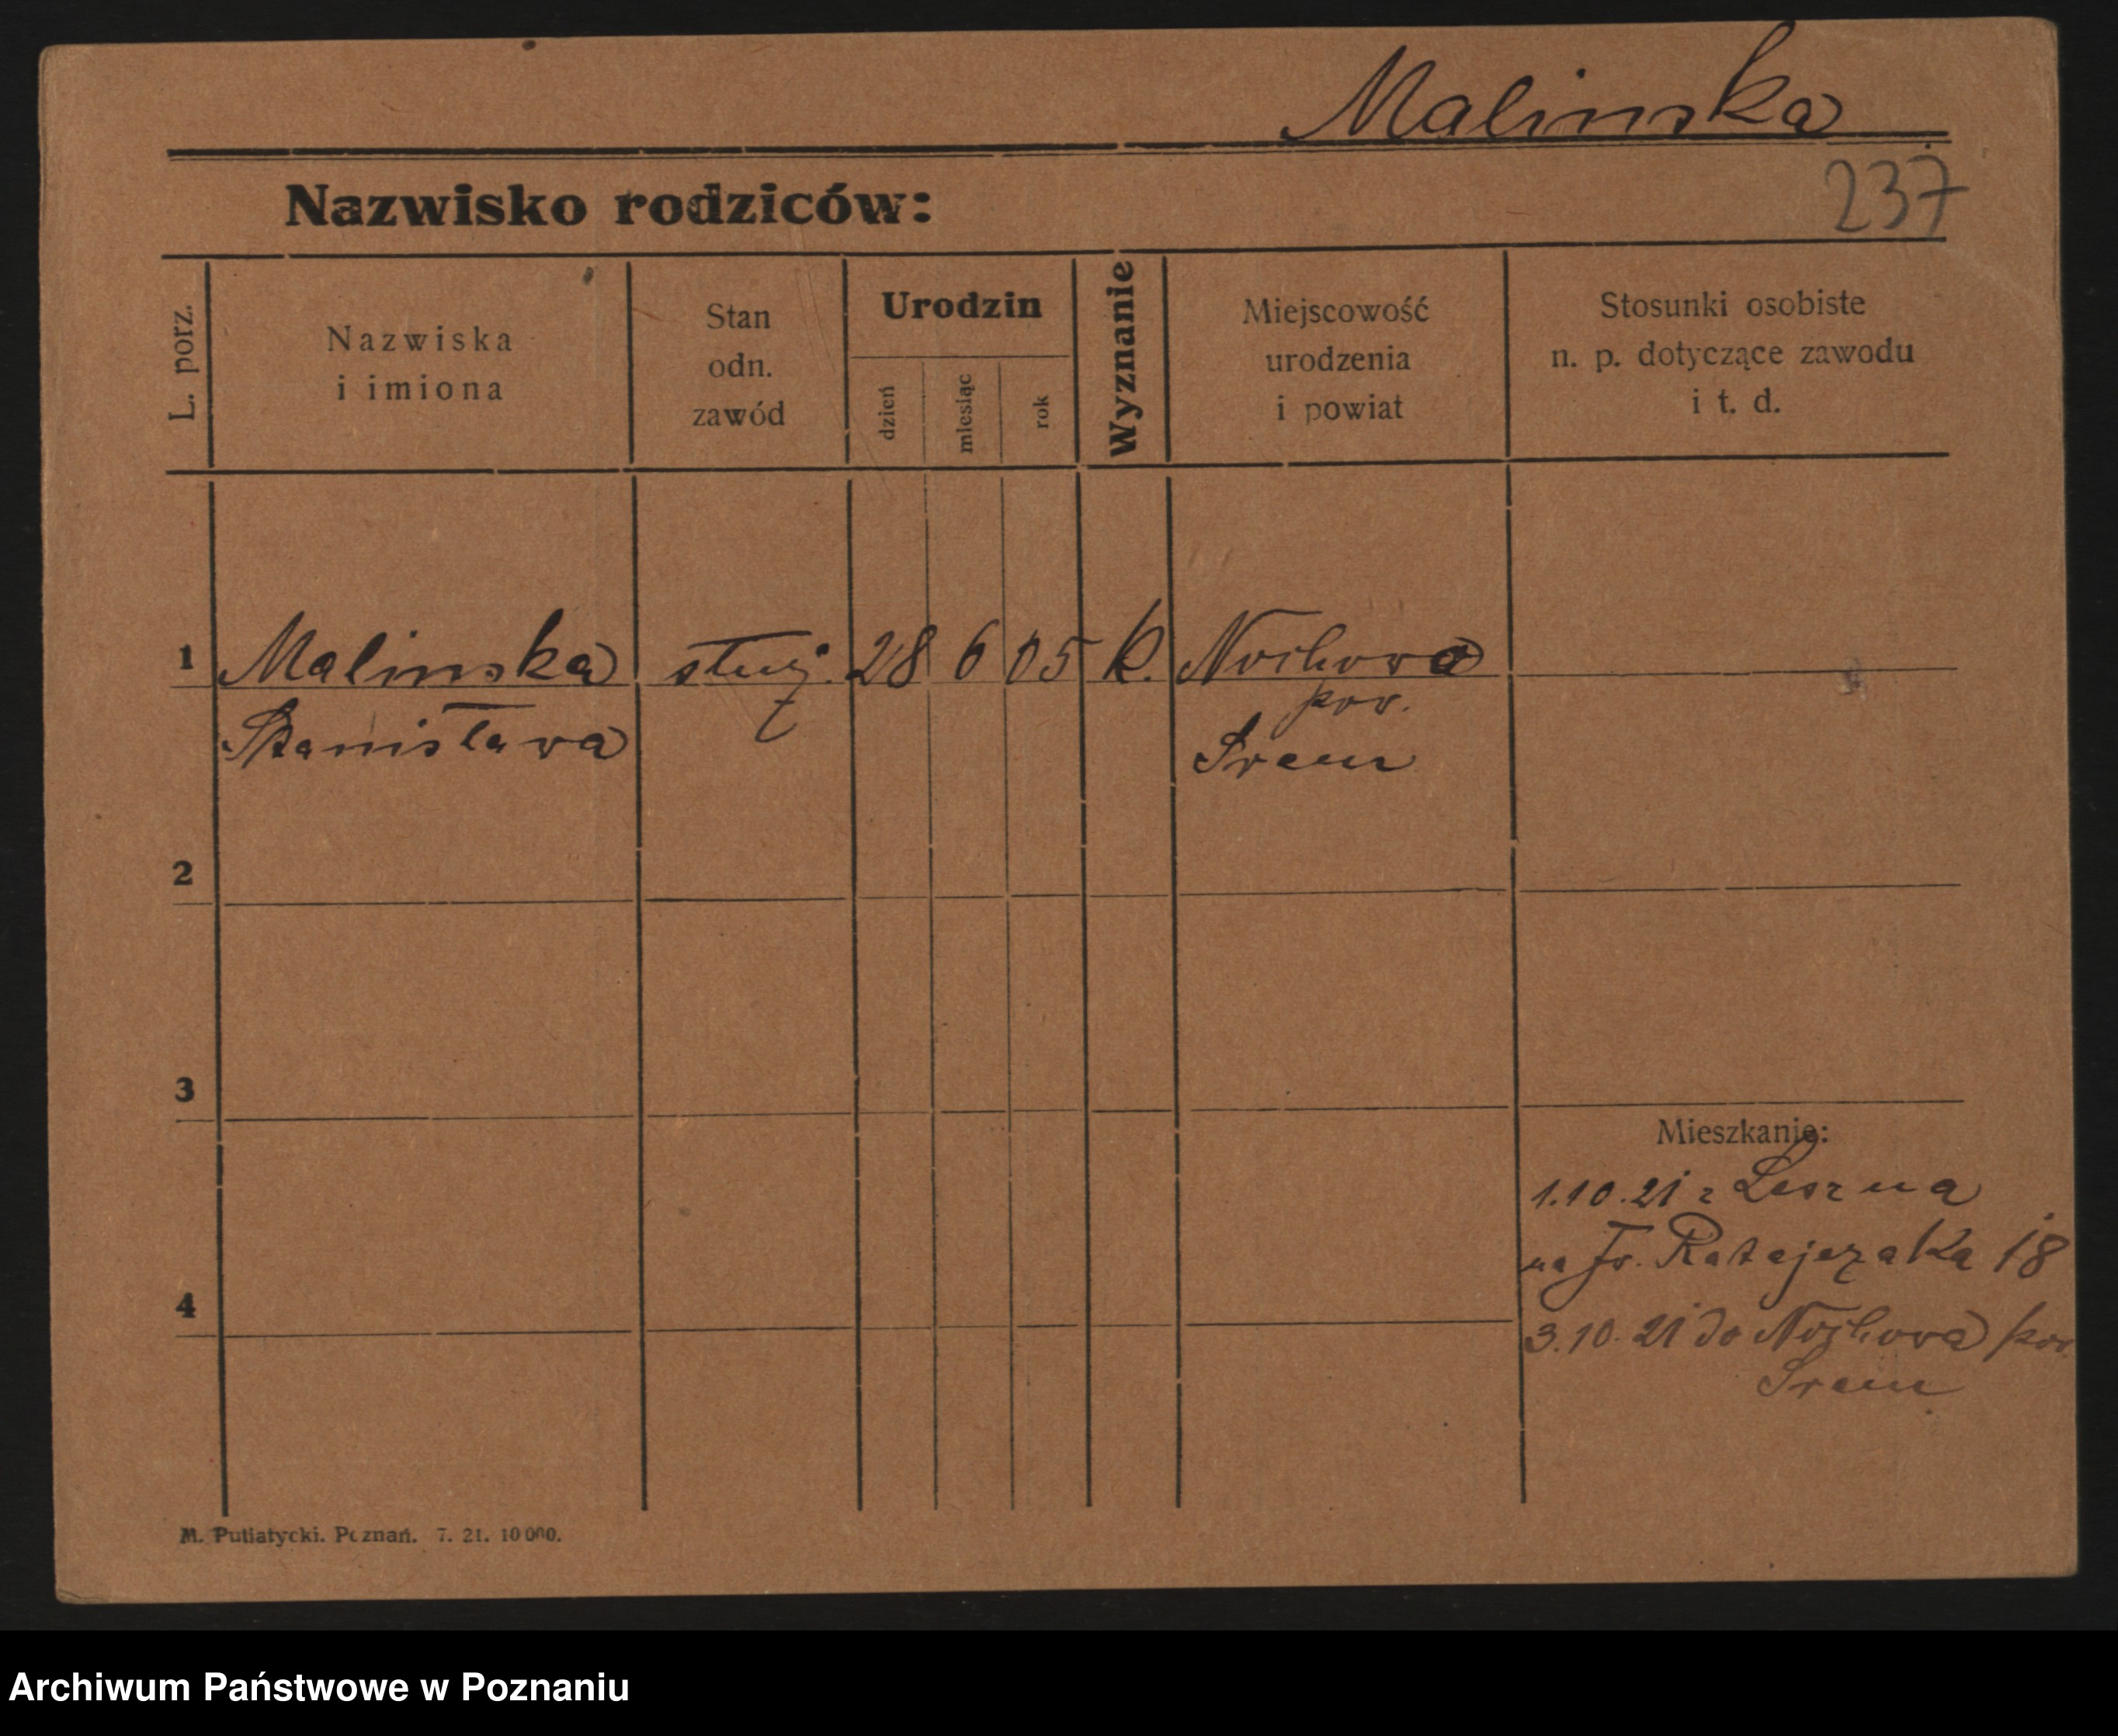 Malinska
Nazwisko rodziców:
237
L. porz.
Nazwiska
i imiona
Stan
odn.
zawód
Urodzin
dzień
miesiąc
rok
Wyznanie
Miejscowość
urodzenia
i powiat
Stosunki osobiste
n. p. dotyczące zawodu
i t. d.
1 Malinska służ. 28 6 05 k. Nochowo
pow.
Stanisława Śrem
2
3
Mieszkanie:
1.10.21 z Leszna
na Fr. Ratajczaka 18
4
3.10.21 do Nochowa pow.
Śrem
M. Putiatycki. Poznań. 7. 21. 10000.
Archiwum Państwowe w Poznaniu